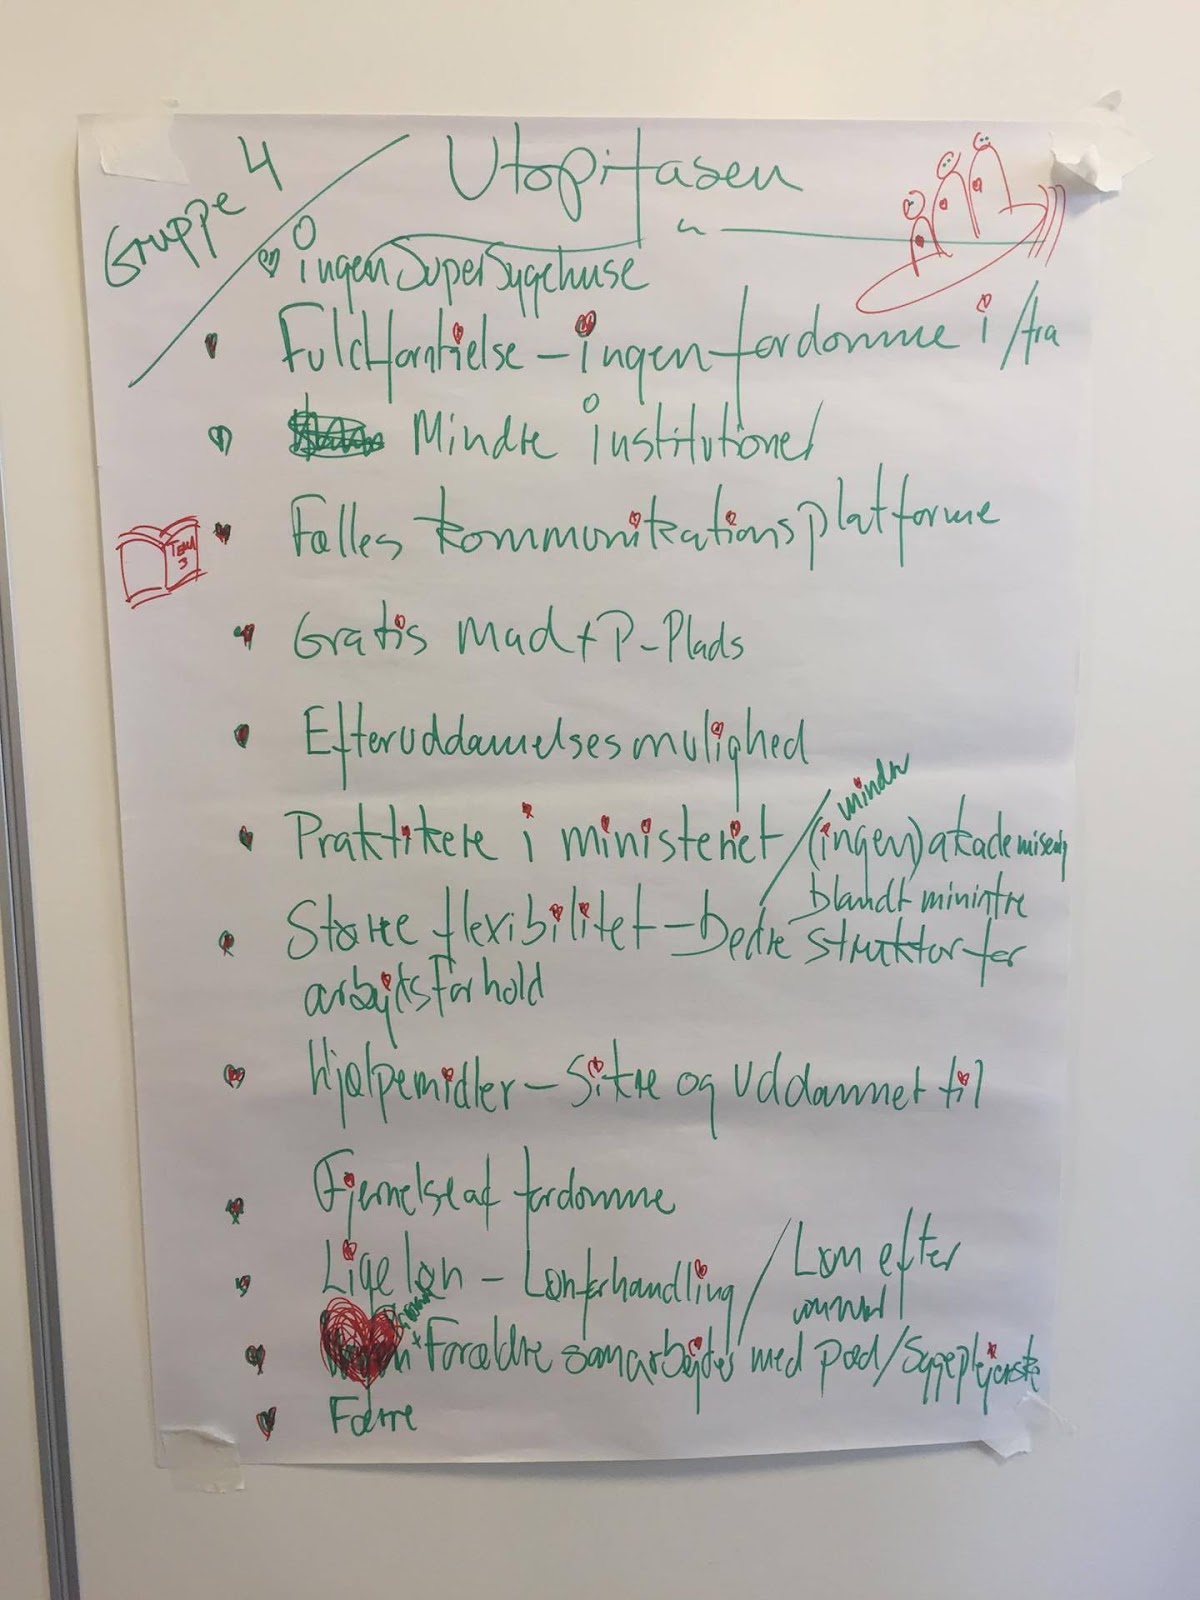 Gruppe 4
Utopifasen
ingen Supersygehuse
Fuld forståelse - ingen fordomme i/fra
Mindre institutioner
Fælles kommunikationsplatforme
TEMA 3
Gratis mad + P-Plads
Efteruddannelsesmulighed
mindre
Praktikere i ministeriet / (ingen) akademisering
blandt minintre
Større flexibilitet - bedre struktur for
arbejdsforhold
Hjælpemidler - Sikre og uddannet til
Fjernelse af fordomme
Lige løn - Lønforhandling / Løn efter
Forældre samarbejdes med pæd/Sygeplejerske
Færre